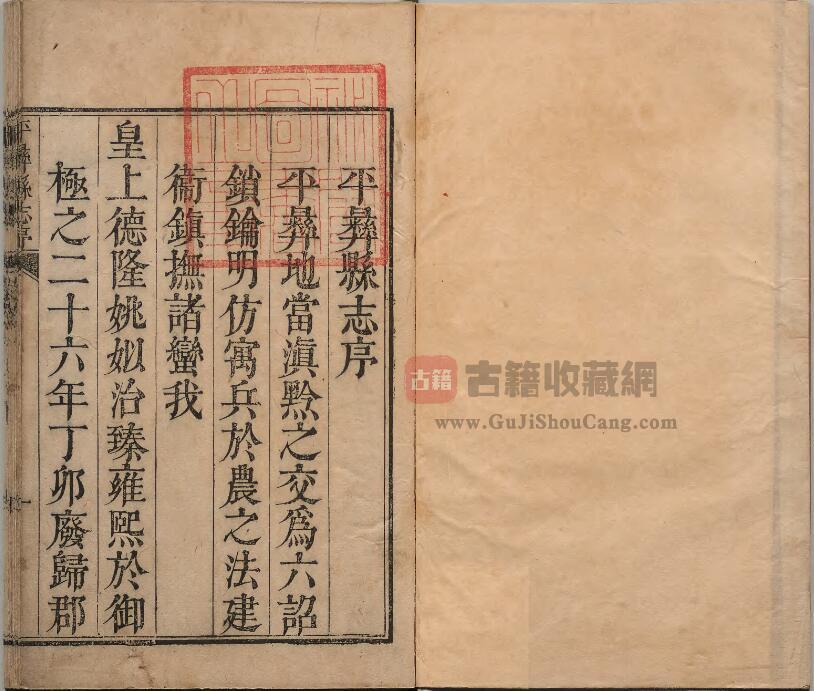 平彜縣志序
平彜地當滇黔之交爲六詔
鎖鑰明仿寓兵於農之法建
衞鎮撫諸蠻我
皇上德隆姚姒治臻雍熙於御
極之二十六年丁卯廢歸郡
平彜縣志序
一
古籍 古籍收藏網
www.GuJiShouCang.com